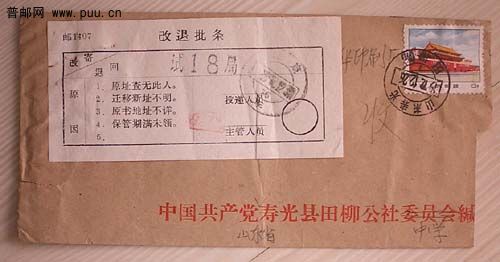 普邮网
www.puu.com.cn
邮1407
改退批条
改寄
退回
试18局
原因
1. 原址查无此人。
2. 迁移新址不明。
3. 原书地址不详。
4. 保管期满未领。
5.
投递人员
主管人员
收
山东寿光
中国共产党寿光县田柳公社委员会缄
山东省
中学